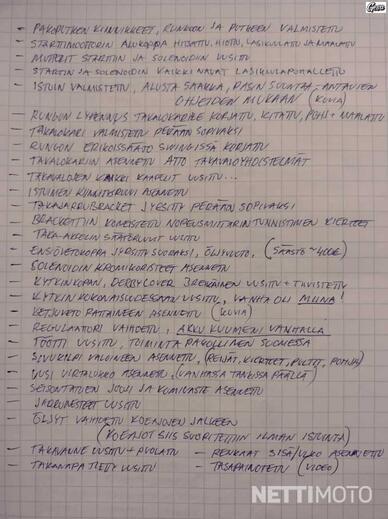 - PAKOPUTKEN KIINNIKKEET, RUNKOON JA PUTKEEN VALMISTETTU
- STARTTIMOOTTORIN ALUKOPPA HITSATTU, HIOTTU, LASIKUULATTU JA MAALATTU
- MUTTERIT STARTTIIN JA SOLENOIDIIN UUSITTU
- STARTIN JA SOLENOIDIN KAIKKI NAVAT LASIKUULAPUHALLETTU
- ISTUIN VALMISTETTU, ALUSTA SAAKKA, RASIN SUUNTA-ANTAVIEN
OHJEIDEN MUKAAN (KUVIA)
- RUNGON LYHENNYS TAKALOKARILLE KORJATTU, KITATTU, POHJ + MAALATTU
- TAKALOKARI VALMISTETTU PERÄÄN SOPIVAKSI
- RUNGON ERIKOISSÄÄTÖ SWINGISSÄ KORJATTU
- TAKALOKARIIN ASENNETTU ATTO TAKAVALOYHDISTELMÄT
- TAKAVALOJEN KAIKKI KAAPELIT UUSITTU...
- ISTUIMEN KIINNITYSRUUVI ASENNETTU
- TAKAJARRUBRACKET JYRSITTY PERÄÄN SOPIVAKSI
- BRACKETTIIN KONEISTETTU NOPEUSMITTARIN TUNNISTIMEN KIERTEET
- TAKA-AKSELIN SÄÄTÖRUUVIT UUSITTU
- ENSIÖVETOKOPPA JYRSITTY SUORAKSI, ÖLJYVUOTO, (SÄÄSTÖ ~400€)
- SOLENOIDIN KROMIKORISTEET ASENNETTU
- KYTKINKOPAN, DERBYCOVER BREIKÄINEN UUSITTU + TIIVISTETTU
- KYTKIN KOKONAISUUDESSAAN UUSITTU, VANHA OLI MUINA!
- KETJUVETO PATAINEEN ASENNETTU (KUVIA)
- REGULAATTORI VAIHDETTU, AKKU KUUMENI VANHALLA
- TÖÖTTI UUSITTU, TOIMINTA PAKOLLINEN SUOMESSA
- SIVUKILPI VALOINEEN ASENNETTU, (REIJÄT, KIERTEET, PULTIT, POHJA)
- UUSI VIRTALUKKO ASENNETTU, (VANHASSA TANKISSA PÄÄLLÄ)
- SEISONTATUEN JOUSI JA KUMIVASTE ASENNETTU
- JARRUNESTEET UUSITTU
- ÖLJYT VAIHDETTU KOEAJOJEN JÄLKEEN
(KOEAJOT SIIS SUORITETTIIN ILMAN ISTUINTA)
- TAKAVANNE UUSITTU + PUOLATTU - RENKAAT SISÄ/ULKO ASENNETTU
- TAKANAPA TIETTY UUSITTU - TASAPAINOTETTU (VIDEO)
NETTIMOTO